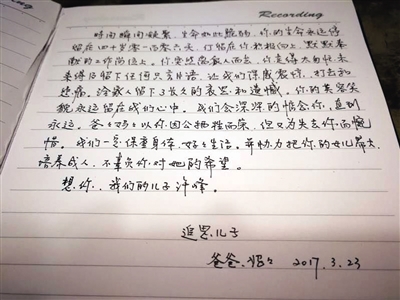 Recording
时间瞬间凝聚，生命如此脆弱，你的生命永远停
留在四十岁零一百零六天，停留在你积极向上，默默奉
献的工作岗位上。你突然离家人而去，你走得太匆忙，未
来得及留下任何只言片语，让我们深感震惊，打击和
悲痛。给家人留下了长久的哀思和遗憾。你的英容笑
貌永远留在我们心中。我们会深深的惦念你，直到
永远。爸爸妈妈以你因公牺牲而荣，但又为失去你而惋
惜。我们一定保重身体，好好生活。并协力把你的女儿带大，
培养成人，不辜负你对她的希望。
想你，我们的儿子许峰。
追思儿子
爸爸、妈妈 2017.3.23